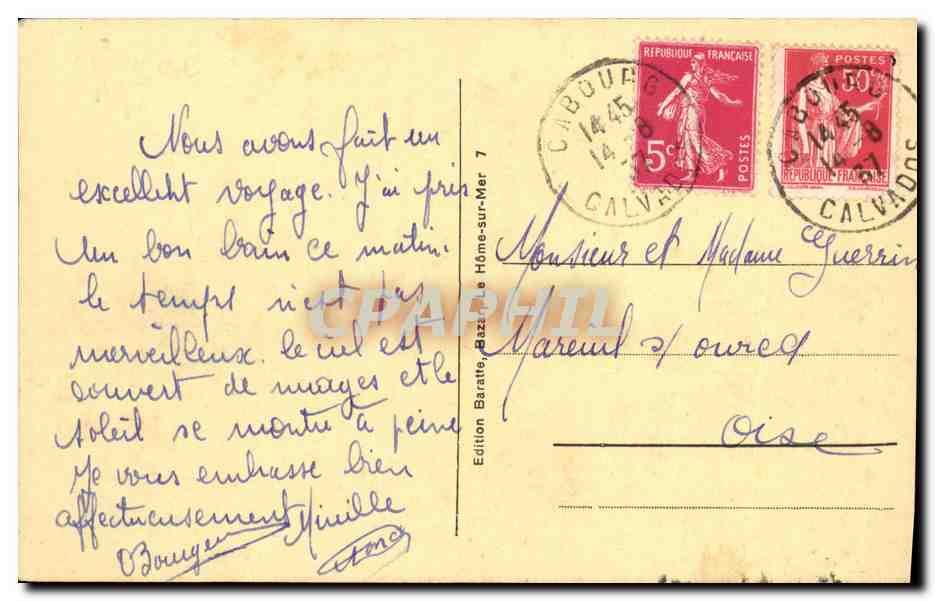 Nous avons fait un
excellent voyage. J'ai pris
Un bon bain ce matin.
le temps n'est pas
merveilleux. le ciel est
couvert de nuages et le
soleil se montre à peine
Je vous embrasse bien
affectueusement Mireille
Edition Baratte, Bazar, Le Hôme-sur-Mer 7
REPUBLIQUE FRANÇAISE
5c
POSTES
POSTES
50c
REPUBLIQUE FRANÇAISE
CABOURG
14 45
14 - 8
CALVADOS
CABOURG
14 45
14 - 8
37
CALVADOS
Monsieur et Madame Guerrin
Mareuil s/ ourcq
Oise
CPAPHIL